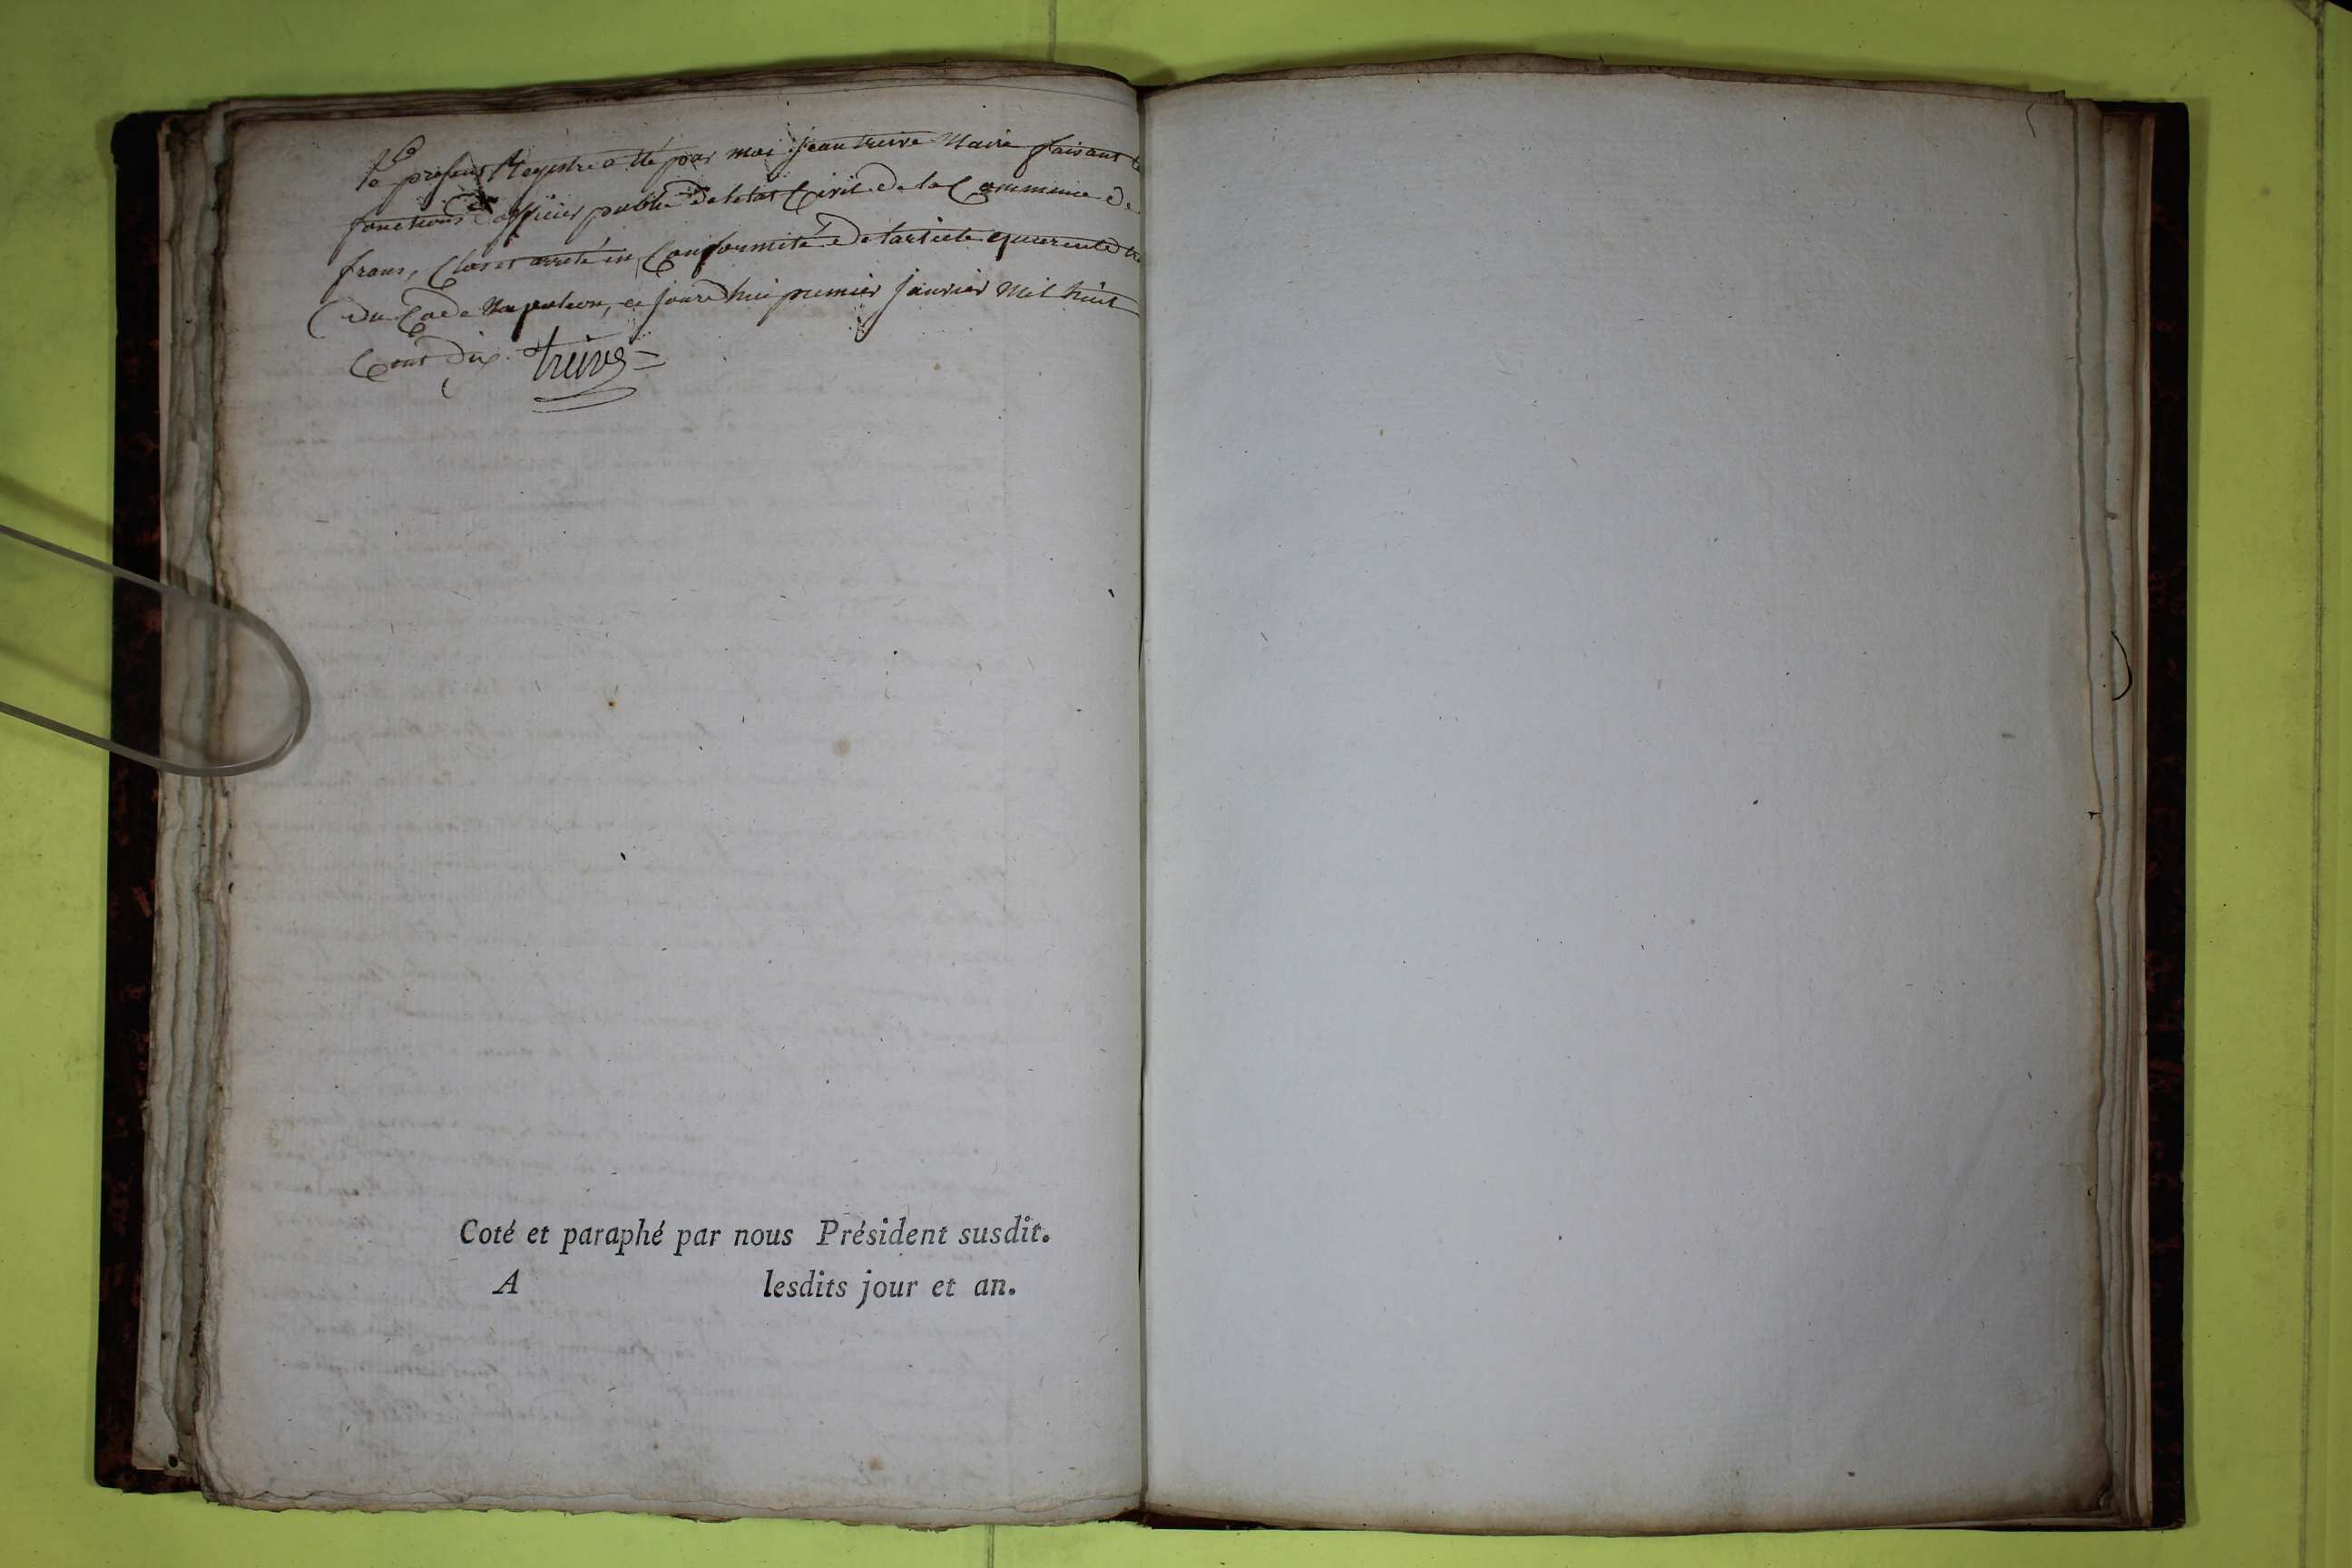 Le present Registre a été par moi jean treive Maire faisant
fonctions d'officier public de letat Civil de la Commune de
frans, Clos et arrêté en Conformité de l'article quarente
du Code Napoleon, ce jourd'hui premier janvier Mil huit
Cent dix. treive
Coté et paraphé par nous Président susdit.
A lesdits jour et an.